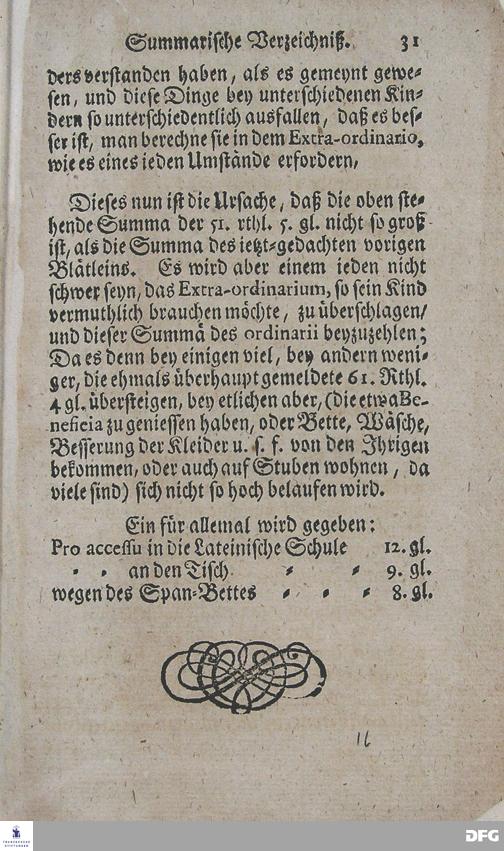 Summarische Verzeichniß. 31
ders verstanden haben, als es gemeynt gewe-
sen, und diese Dinge bey unterschiedenen Kin-
dern so unterschiedentlich ausfallen, daß es bes-
ser ist, man berechne sie in dem Extra-ordinario,
wie es eines ieden Umstände erfordern,
Dieses nun ist die Ursache, daß die oben ste-
hende Summa der 51. rthl. 5. gl. nicht so groß
ist, als die Summa des ietzt-gedachten vorigen
Blätleins. Es wird aber einem ieden nicht
schwer seyn, das Extra-ordinarium, so sein Kind
vermuthlich brauchen möchte, zu überschlagen/
und dieser Summa des ordinarii beyzuzehlen;
Da es denn bey einigen viel, bey andern weni-
ger, die ehmals überhaupt gemeldete 61. Rthl.
4 gl. übersteigen, bey etlichen aber, (die etwa Be-
neficia zu geniessen haben, oder Bette, Wäsche,
Besserung der Kleider u. s. f. von den Ihrigen
bekommen, oder auch auf Stuben wohnen, da
viele sind) sich nicht so hoch belaufen wird.
Ein für allemal wird gegeben:
Pro accessu in die Lateinische Schule 12. gl.
- - an den Tisch - - 9. gl.
wegen des Span-Bettes - - - 8. gl.
16
FRANCKESCHE STIFTUNGEN
DFG